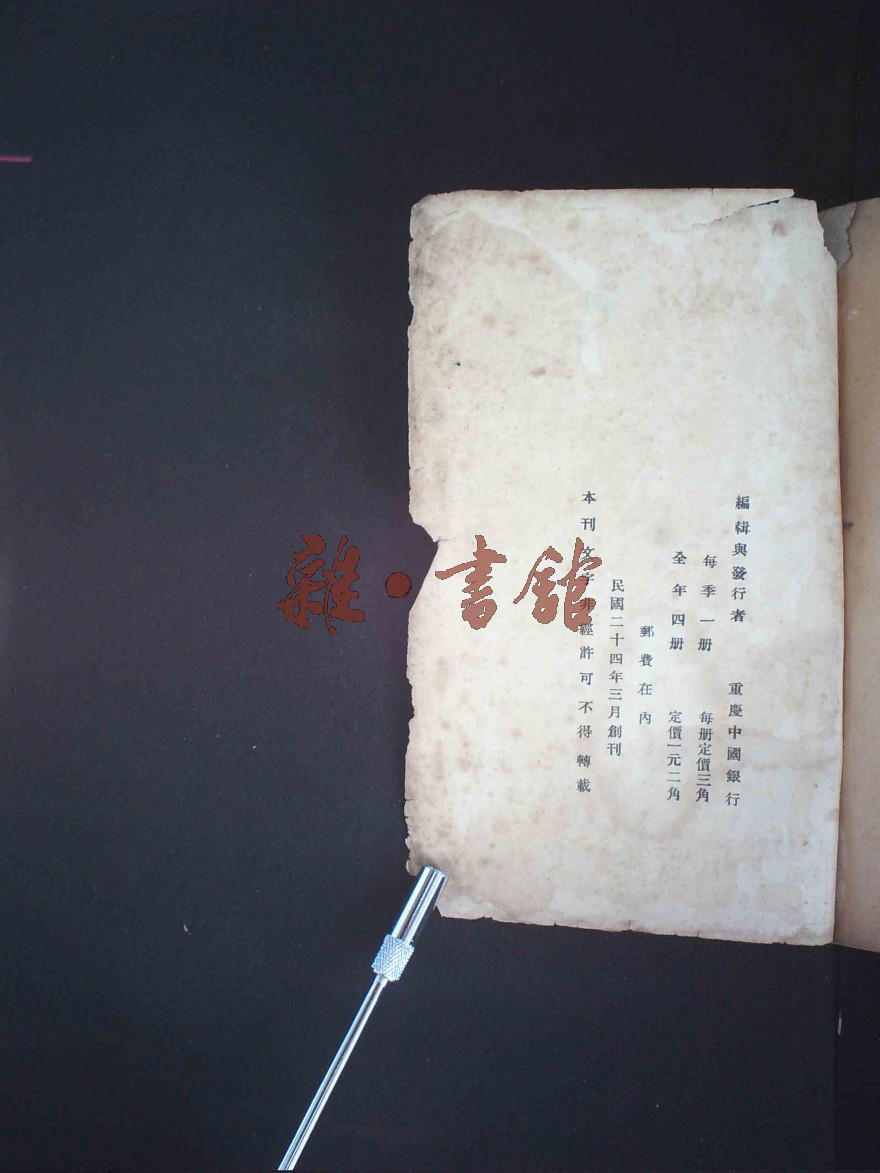 編輯與發行者 重慶中國銀行
每季一册 每册定價三角
全年四册 定價一元二角
郵費在內
民國二十四年三月創刊
本刊文字非經許可不得轉載
雜·書館